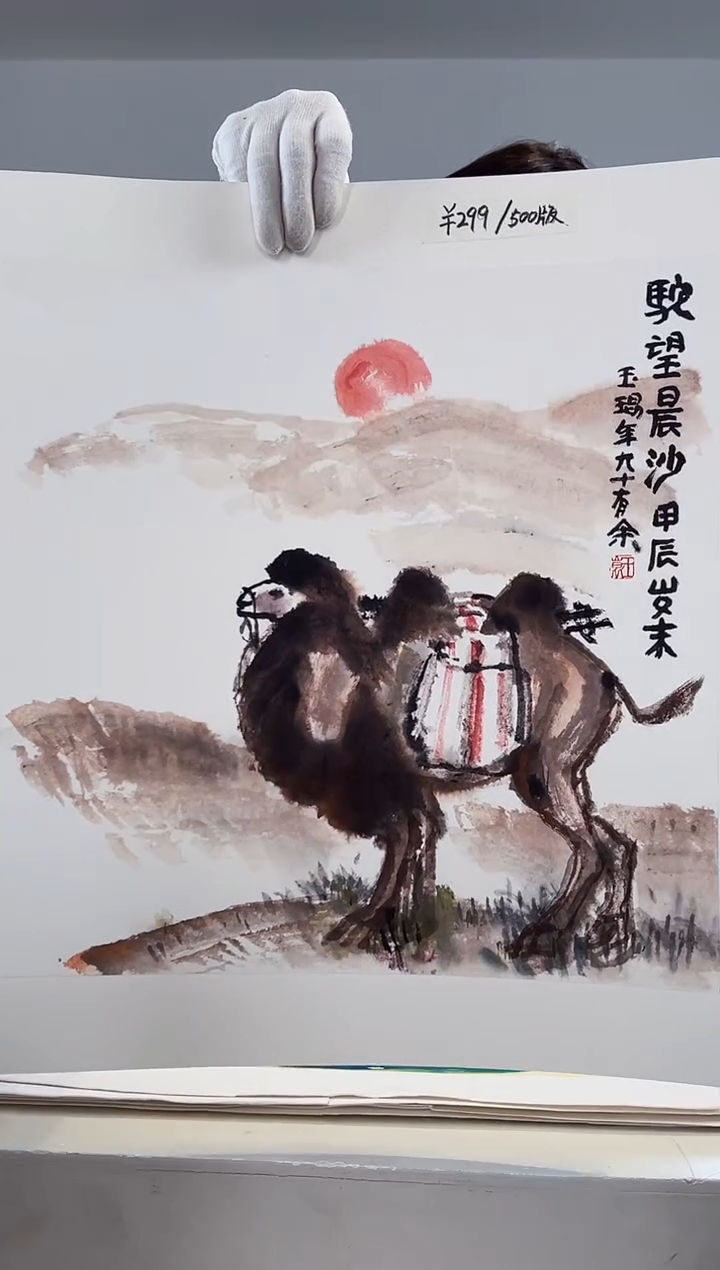 ¥299/500版
駝望晨沙甲辰岁末
玉琨年九十有余